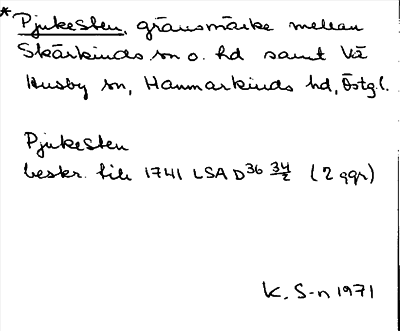 *Pjukesten, gränsmärke mellan
Skärkinds sn o. hd samt Vä
Husby sn, Hammarkinds hd, Östg.l.
Pjukesten
beskr. till 1741 LSA D36 34/2 (2 ggr)
K. S-n 1971